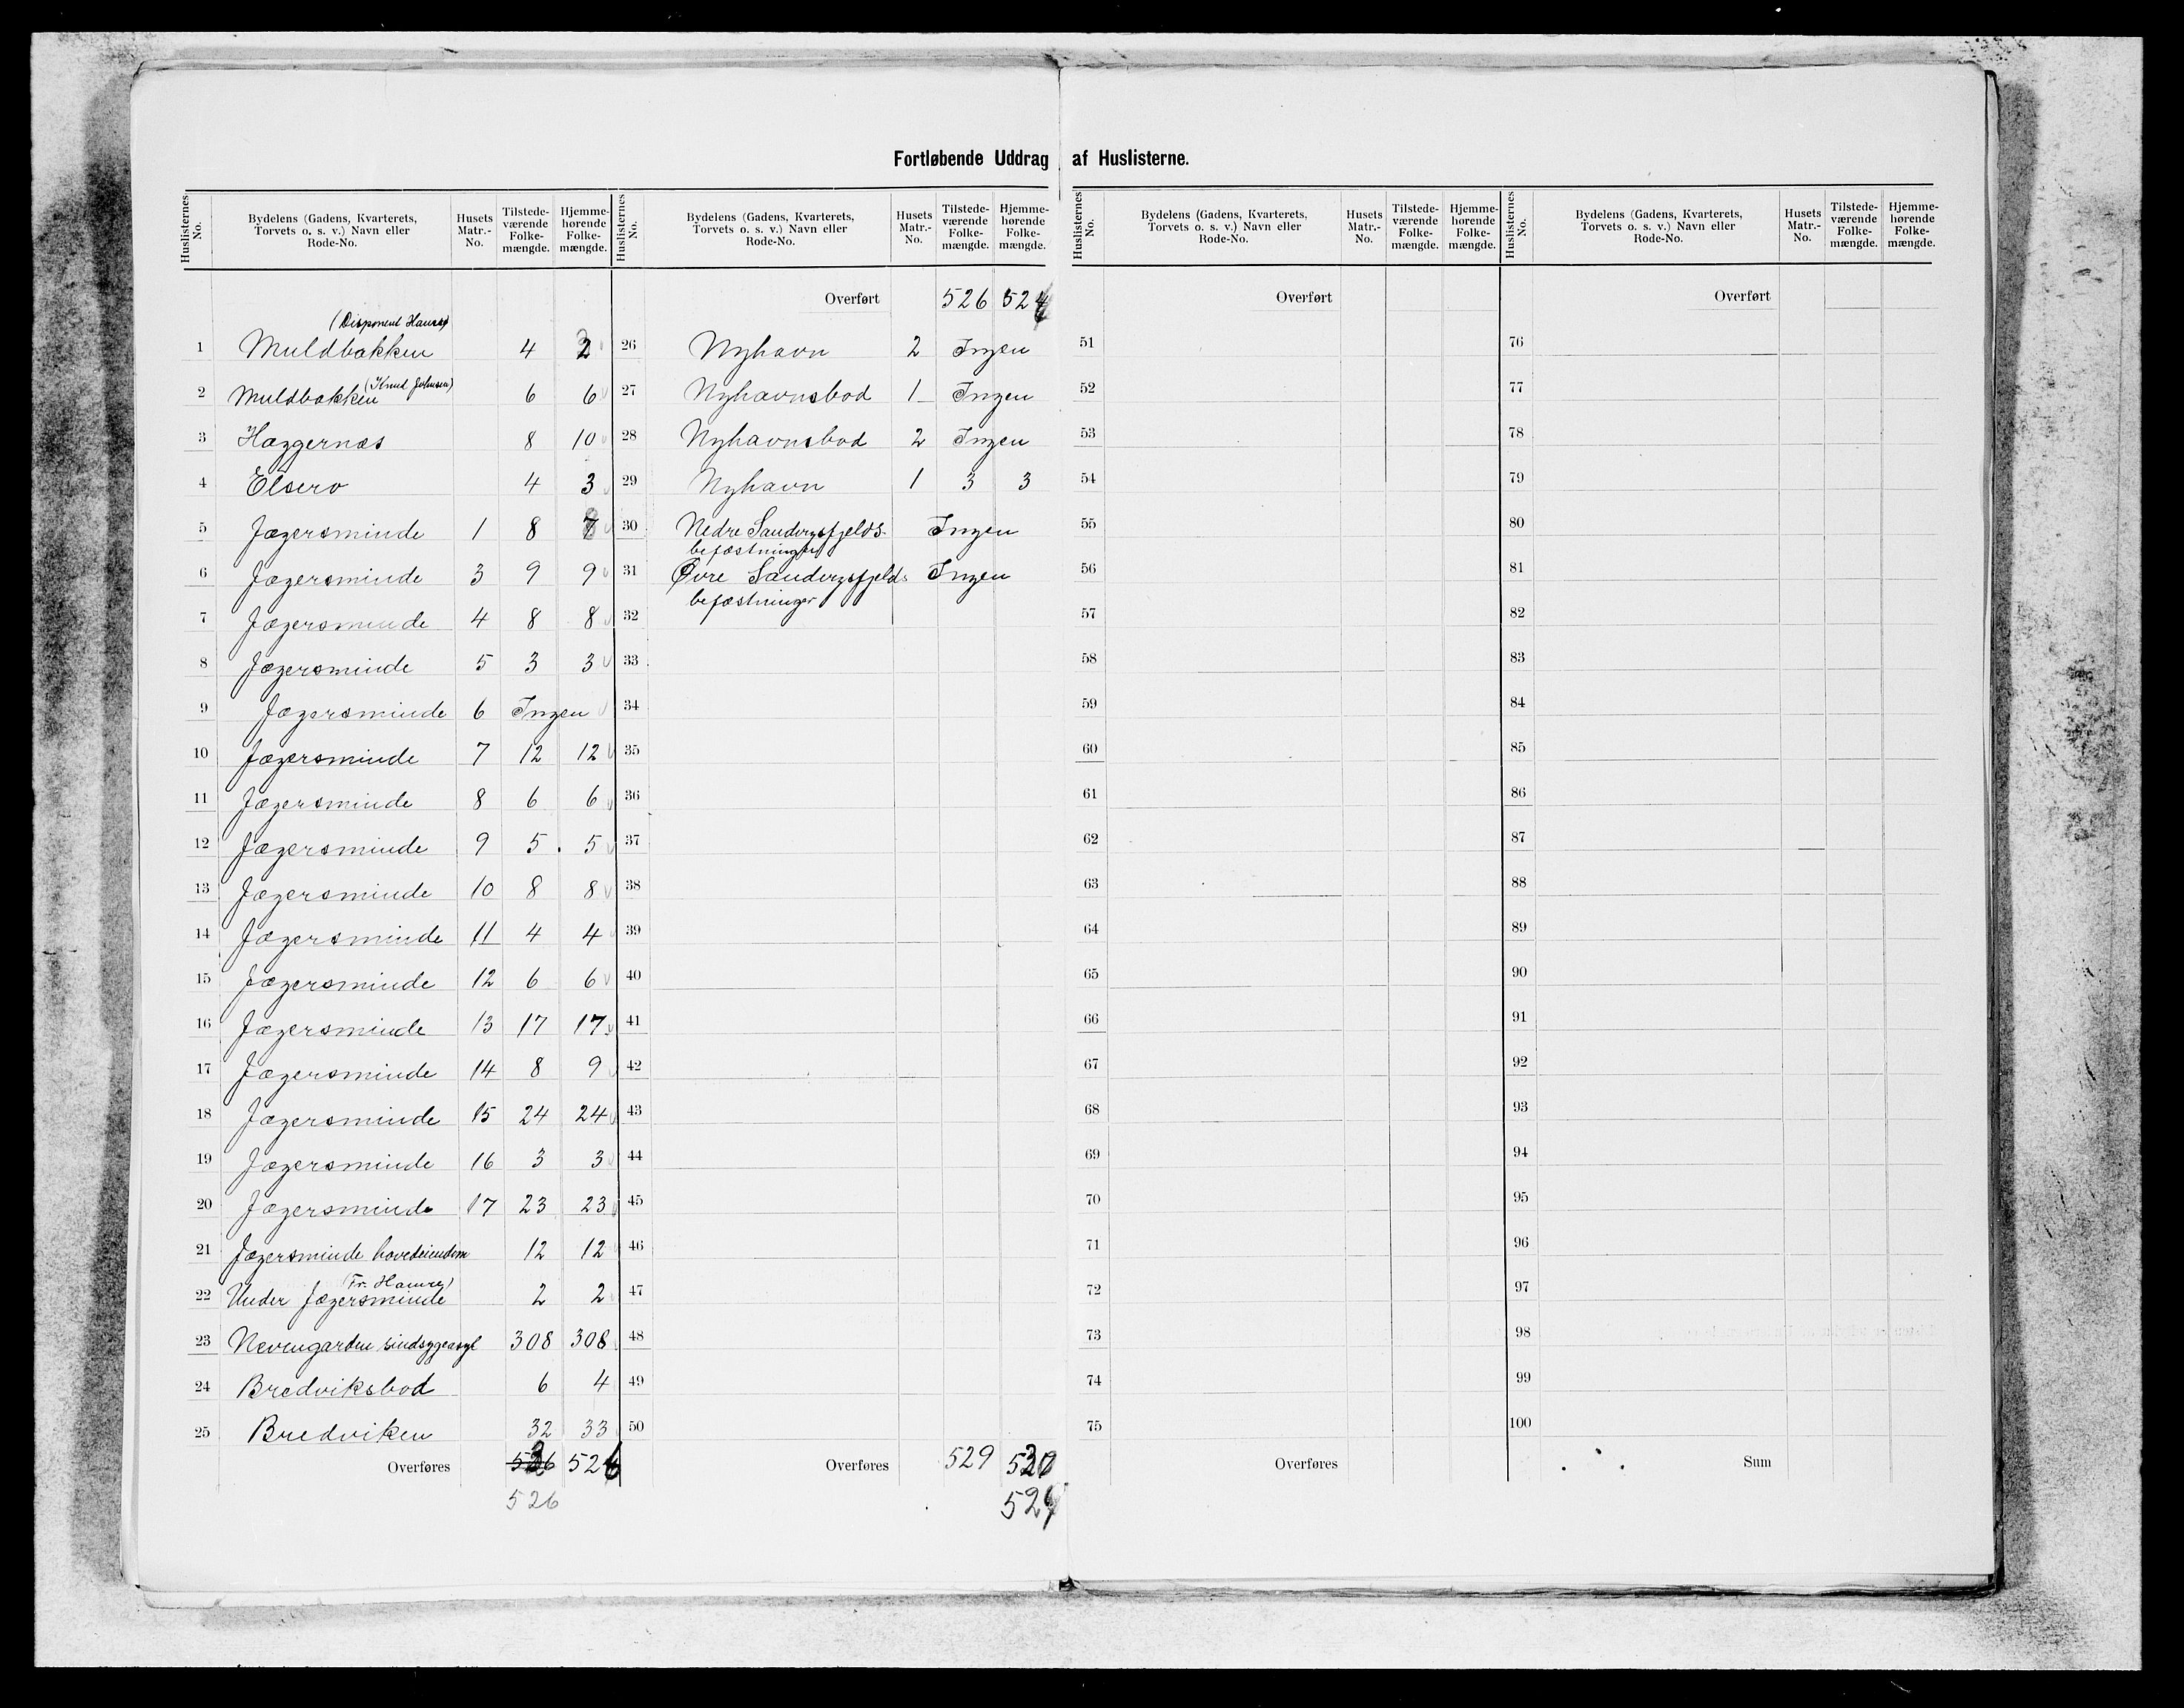 Fortløbende Uddrag af Huslisterne.
Huslisternes No. Bydelens (Gadens, Kvarterets, Torvets o. s. v.) Navn eller Rode-No. Husets Matr.-No. Tilstedeværende Folkemængde. Hjemmehørende Folkemængde.
(Disponent Hauso)
1 Muldbakken 4 2
2 Muldbakken (Knud Johnsen) 6 6
3 Hæggernæs 8 10
4 Elsero 4 3
5 Jægersminde 1 8 7
6 Jægersminde 3 9 9
7 Jægersminde 4 8 8
8 Jægersminde 5 3 3
9 Jægersminde 6 Ingen
10 Jægersminde 7 12 12
11 Jægersminde 8 6 6
12 Jægersminde 9 5 5
13 Jægersminde 10 8 8
14 Jægersminde 11 4 4
15 Jægersminde 12 6 6
16 Jægersminde 13 17 17
17 Jægersminde 14 8 9
18 Jægersminde 15 24 24
19 Jægersminde 16 3 3
20 Jægersminde 17 23 23
21 Jægersminde hovedeiendom 12 12
(Fr. Hamre)
22 Under Jægersminde 2 2
23 Nevengaarden sindsygeasyl 308 308
24 Bredviksbod 6 4
25 Bredviken 32 33
Overføres 526 526
526
Huslisternes No. Bydelens (Gadens, Kvarterets, Torvets o. s. v.) Navn eller Rode-No. Husets Matr.-No. Tilstedeværende Folkemængde. Hjemmehørende Folkemængde.
Overført 526 524
26 Nyhavn 2 Ingen
27 Nyhavnsbod 1 Ingen
28 Nyhavnsbod 2 Ingen
29 Nyhavn 1 3 3
30 Nedre Sandvigsfjelds- Ingen
befæstninger
31 Øvre Sandvigsfjelds Ingen
befæstninger
32
33
34
35
36
37
38
39
40
41
42
43
44
45
46
47
48
49
50
Overføres 529
Huslisternes No. Bydelens (Gadens, Kvarterets, Torvets o. s. v.) Navn eller Rode-No. Husets Matr.-No. Tilstedeværende Folkemængde. Hjemmehørende Folkemængde.
Overført
51
52
53
54
55
56
57
58
59
60
61
62
63
64
65
66
67
68
69
70
71
72
73
74
75
Overføres
Huslisternes No. Bydelens (Gadens, Kvarterets, Torvets o. s. v.) Navn eller Rode-No. Husets Matr.-No. Tilstedeværende Folkemængde. Hjemmehørende Folkemængde.
Overført
76
77
78
79
80
81
82
83
84
85
86
87
88
89
90
91
92
93
94
95
96
97
98
99
100
Sum